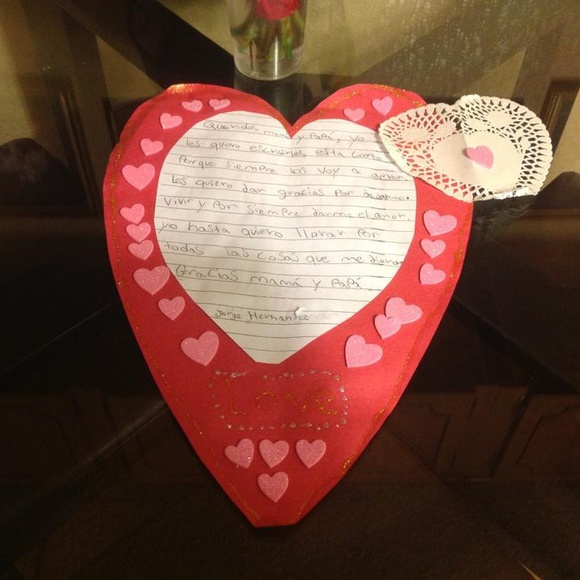 Queridos mamá y papá, yo
les quiero escribirles esta
Porque siempre los voy a
Les quiero dar gracias por
vivir y por siempre darme el amor.
yo hasta quiero llorar por
todas las cosas que me
Gracias mamá y papá.
Jorge Hernandez
Love